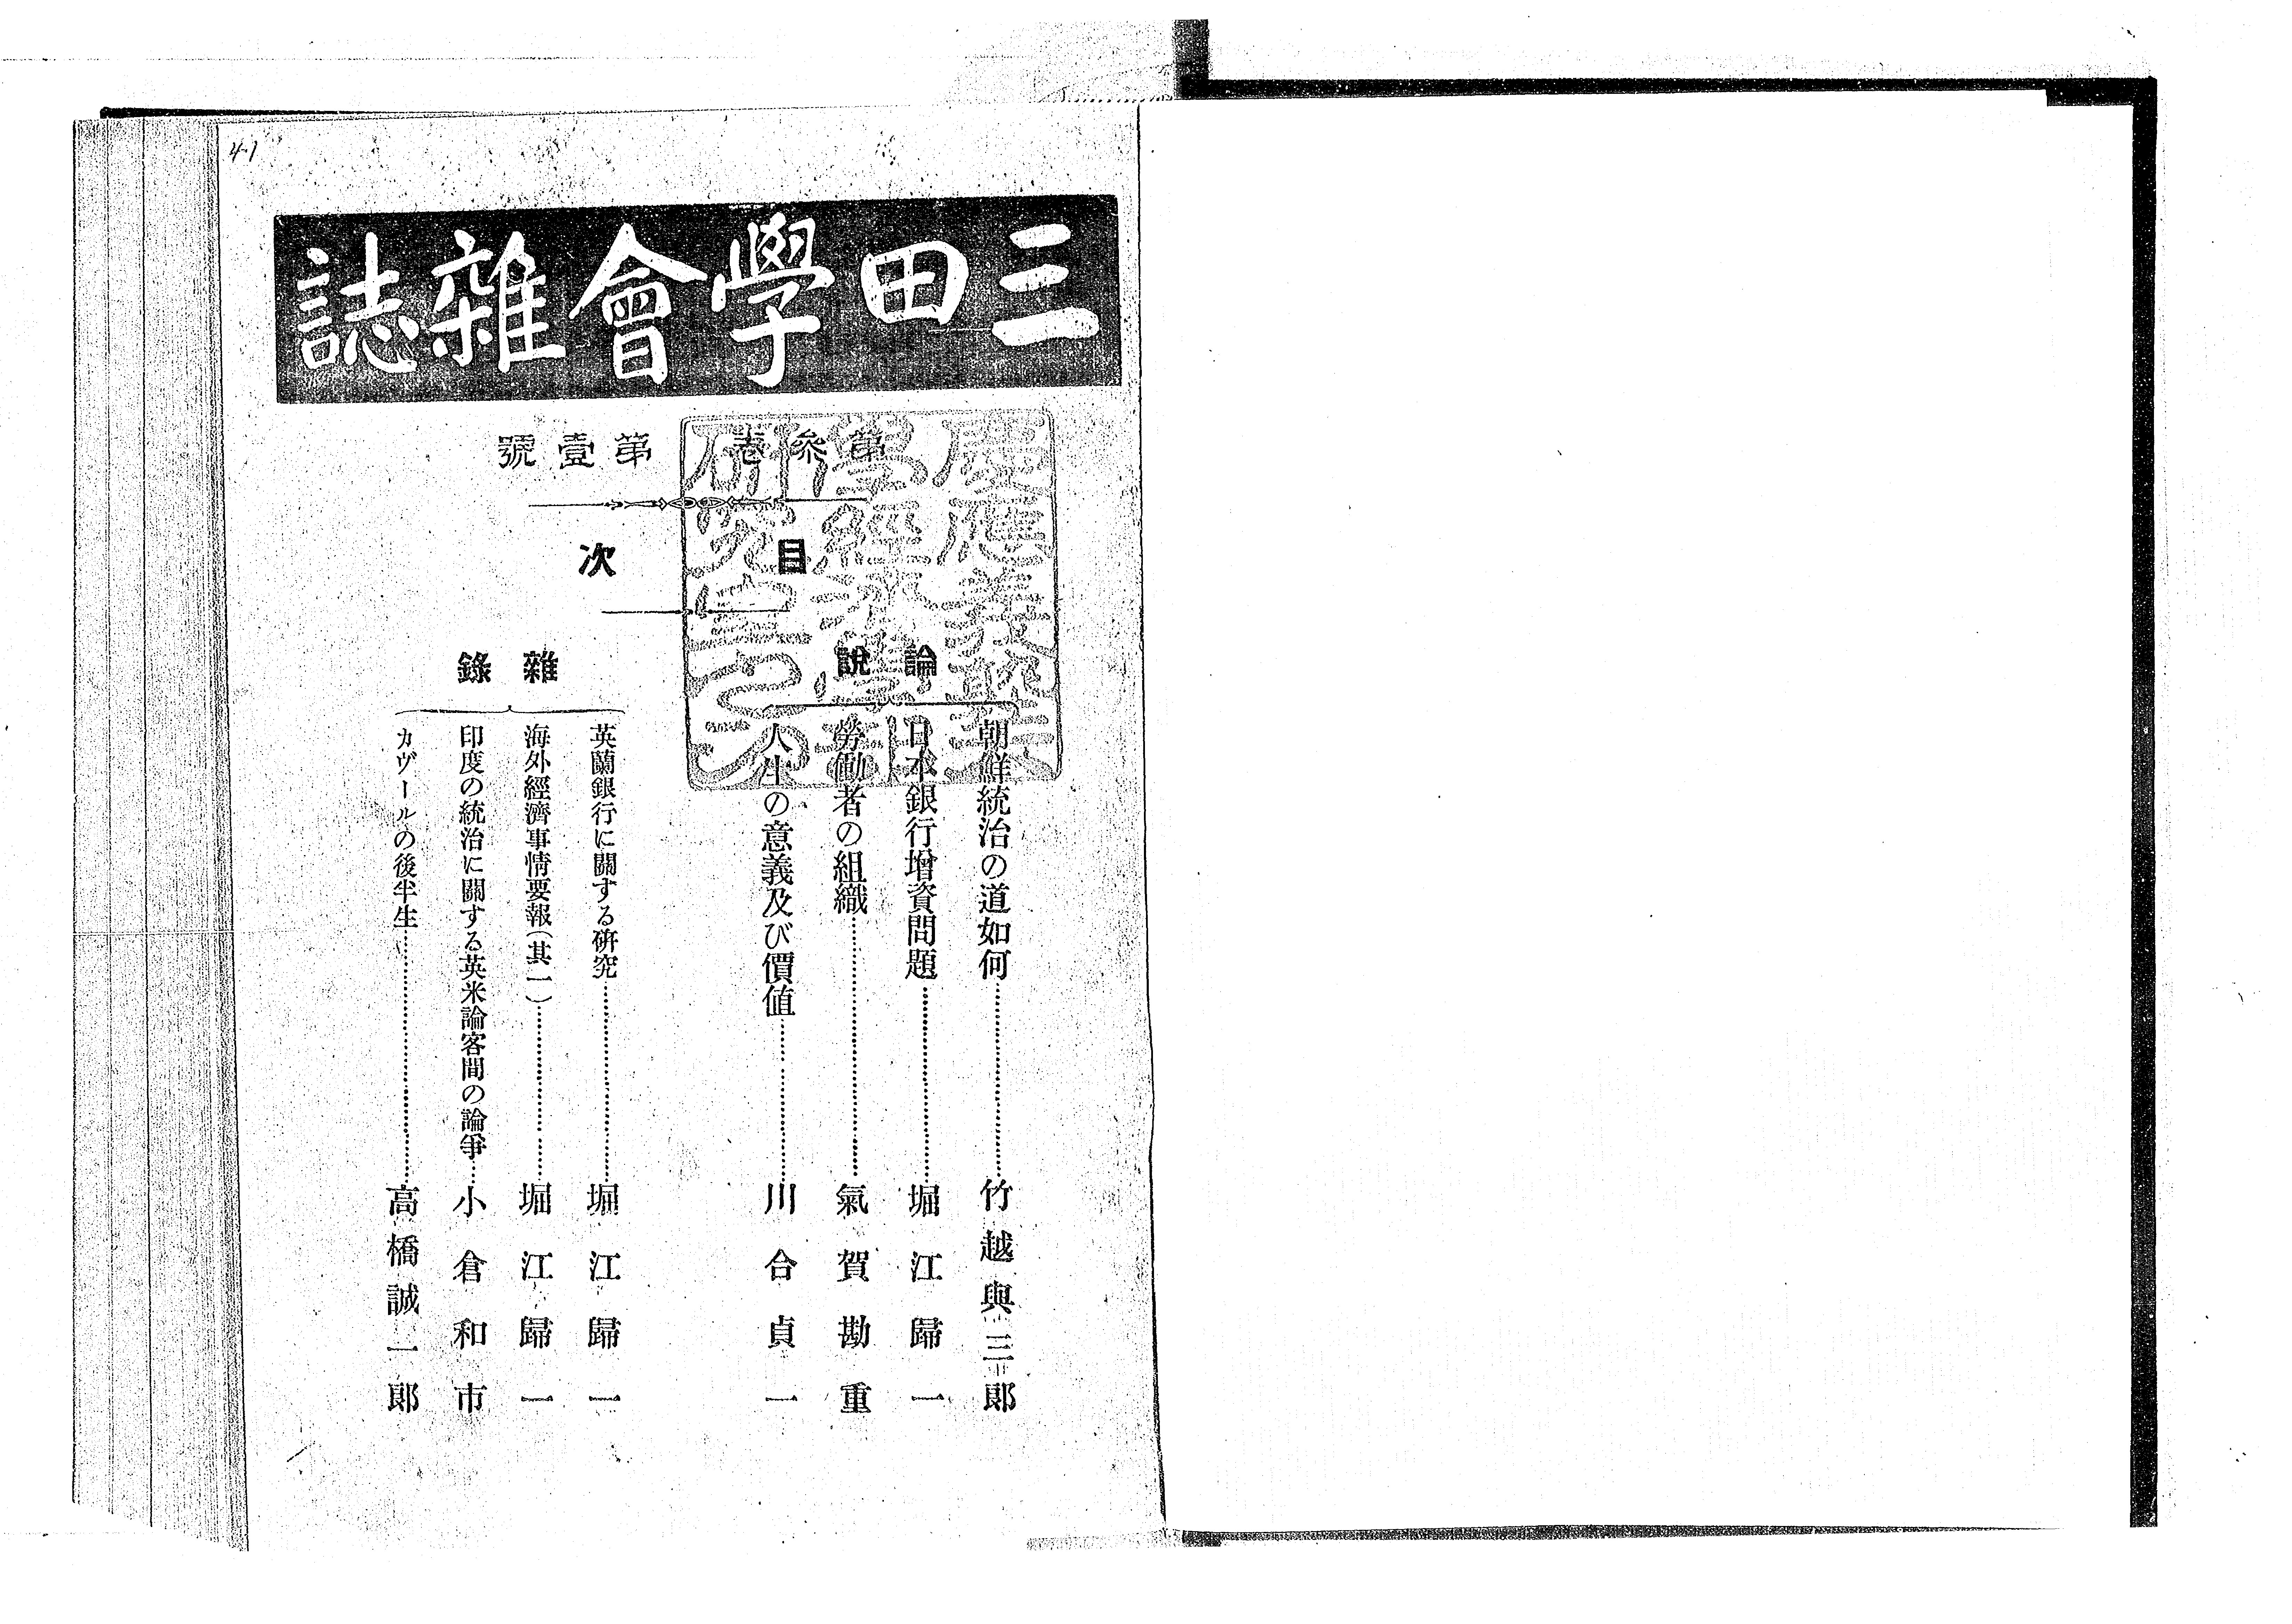 4.1
三田學會雜誌
第參卷 第壹號
目次
論說
朝鮮統治の道如何………竹越與三郞
日本銀行增資問題………堀江歸一
勞働者の組織………氣賀勘重
人生の意義及び價値………川合貞一
雜錄
英蘭銀行に關する硏究………堀江歸一
海外經濟事情要報(其一)………堀江歸一
印度の統治に關する英米論客間の論爭………小倉和市
カヴールの後半生………高橋誠一郞
慶應義塾
學經濟學會
硏究室之